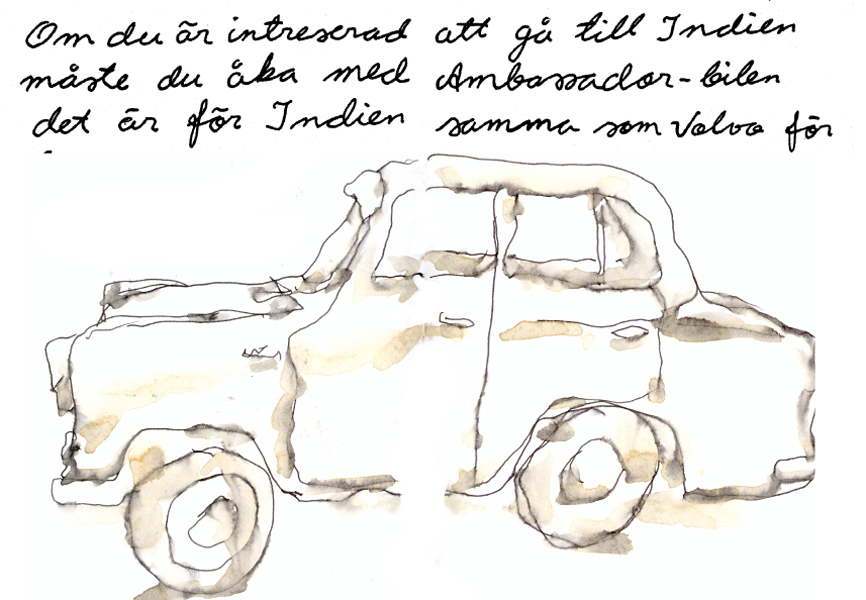 Om du är intreserad att gå till Indien
måste du åka med Ambassador-bilen
det är för Indien samma som Volvo för